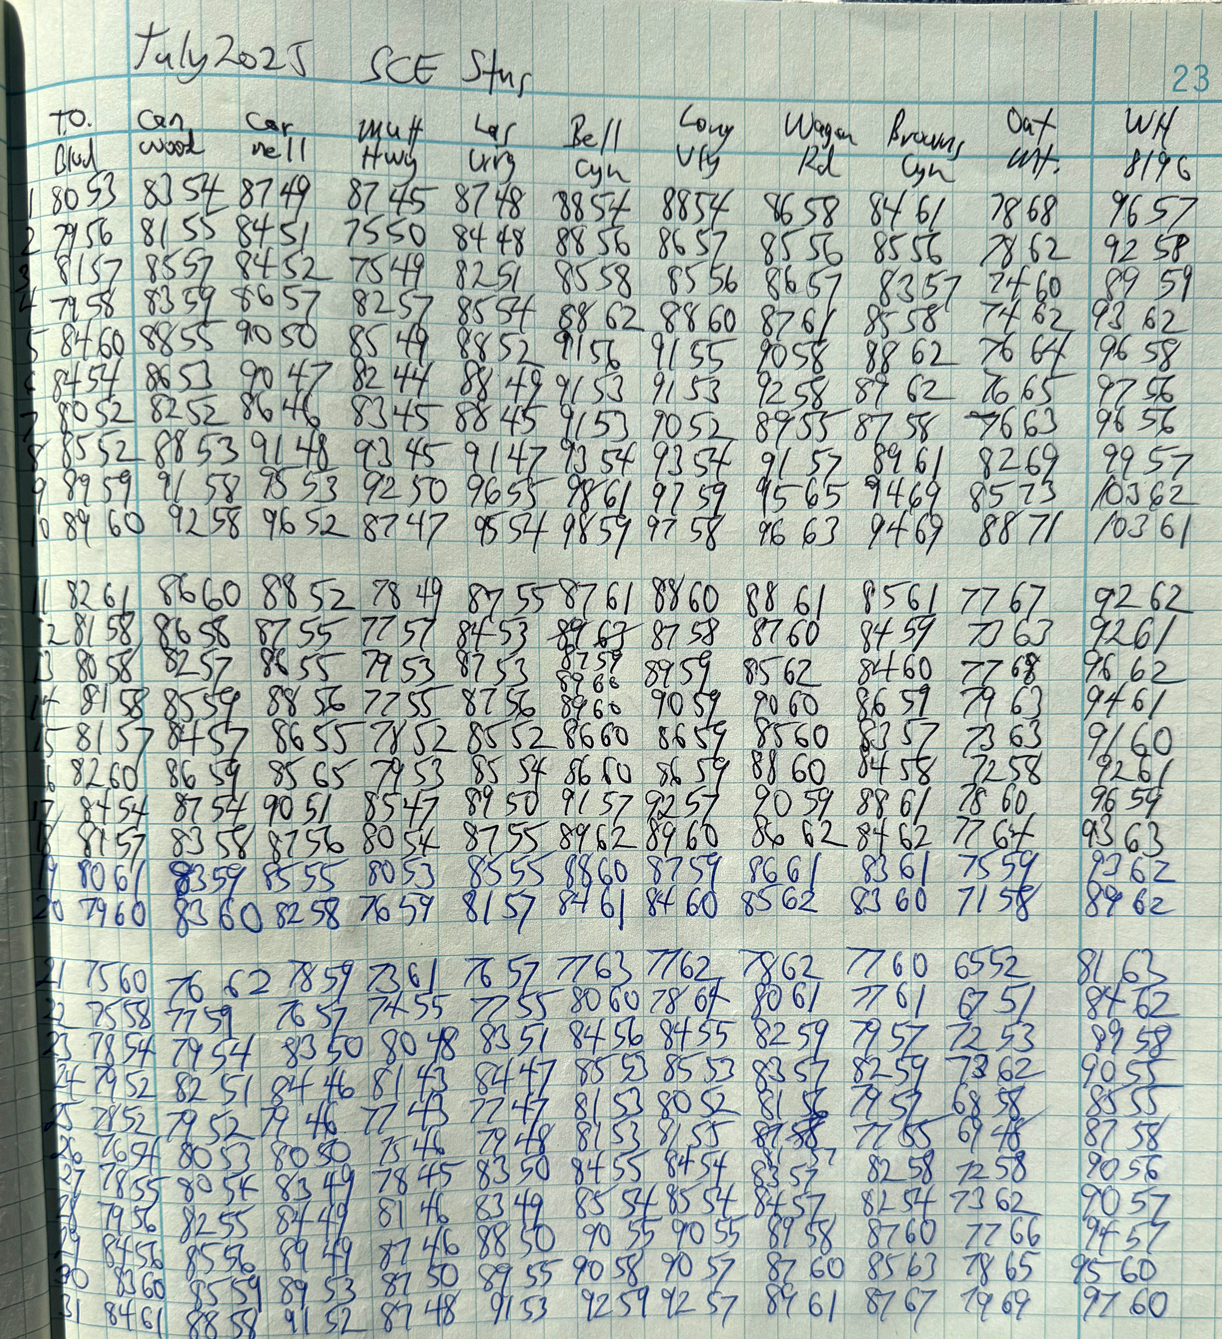 July 2025 SCE Stns
23
T.O. Can Car Mutt Las Bell Long Wagon Browns Oat WH
Blvd wood nell Hwy Virg Cyn Vly Rd Cyn Mt. 8196
1 80 53 83 54 87 49 87 45 87 48 88 54 88 54 86 58 84 61 78 68 96 57
2 79 56 81 55 84 51 75 50 84 48 88 56 86 57 85 56 85 56 78 62 92 58
3 81 57 85 57 84 52 75 49 82 51 85 58 85 56 86 57 83 57 74 60 89 59
4 79 58 83 59 86 57 82 57 85 54 88 62 88 60 87 61 85 58 74 62 93 62
5 84 60 88 55 90 50 85 49 88 52 91 56 91 55 90 58 88 62 76 64 96 58
6 84 54 86 53 90 47 82 44 88 49 91 53 91 53 92 58 89 62 76 65 97 56
7 80 52 82 52 86 46 83 45 88 45 91 53 90 52 89 55 87 58 76 63 96 56
8 85 52 88 53 91 48 93 45 91 47 93 54 93 54 91 57 89 61 82 69 99 57
9 89 59 91 58 95 53 92 50 96 55 98 61 97 59 95 65 94 69 85 73 103 62
10 89 60 92 58 96 52 87 47 95 54 98 59 97 58 96 63 94 69 88 71 103 61
11 82 61 86 60 88 52 78 49 87 55 87 61 88 60 88 61 85 61 77 67 92 62
12 81 58 86 58 87 55 77 57 84 53 89 63 87 58 87 60 84 59 73 63 92 61
13 80 58 82 57 86 55 79 53 87 53 87 59 89 59 85 62 84 60 77 68 96 62
89 60
14 81 58 85 59 88 56 77 55 87 56 89 60 90 59 90 60 86 59 79 63 94 61
15 81 57 84 57 86 55 78 52 85 52 86 60 86 59 85 60 83 57 73 63 91 60
16 82 60 86 59 85 65 79 53 85 54 86 60 86 59 88 60 84 58 72 58 92 61
17 84 54 87 54 90 51 85 47 89 50 91 57 92 57 90 59 88 61 78 60 96 59
18 81 57 83 58 87 56 80 54 87 55 89 62 89 60 86 62 84 62 77 64 93 63
19 80 61 83 59 85 55 80 53 85 55 88 60 87 59 86 61 83 61 75 59 93 62
20 79 60 83 60 82 58 76 59 81 57 84 61 84 60 85 62 83 60 71 58 89 62
21 75 60 76 62 78 59 73 61 76 57 77 63 77 62 78 62 77 60 65 52 81 63
22 75 58 77 59 76 57 74 55 77 55 80 60 78 64 80 61 77 61 67 51 84 62
23 78 54 79 54 83 50 80 48 83 51 84 56 84 55 82 59 79 57 72 53 89 58
24 79 52 82 51 84 46 81 43 84 47 85 53 85 53 83 57 82 59 73 62 90 55
25 78 52 79 52 79 46 77 43 77 47 81 53 80 52 81 56 79 57 68 58 85 55
26 76 54 80 53 80 50 75 46 79 48 81 53 81 55 77 55 69 48 87 58
27 78 55 80 54 83 49 78 45 83 50 84 55 84 54 83 57 82 58 72 58 90 56
28 79 56 82 55 84 49 81 46 83 49 85 54 85 54 84 57 82 54 73 62 90 57
29 84 56 85 56 89 49 87 46 88 50 90 55 90 55 89 58 87 60 77 66 94 57
30 83 60 85 59 89 53 87 50 89 55 90 58 90 57 87 60 85 63 78 65 95 60
31 84 61 88 58 91 52 87 48 91 53 92 59 92 57 89 61 87 67 79 69 97 60